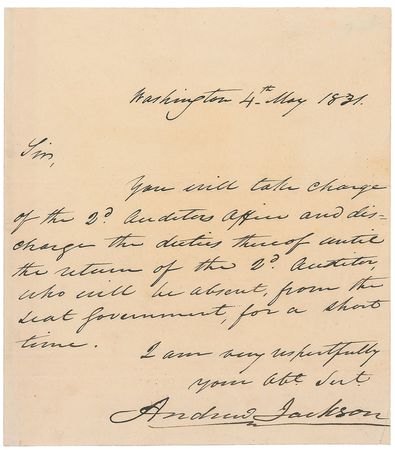 Washington 4th May 1831.
Sir,
You will take charge
of the 2d Auditors Office and dis-
charge the duties thereof until
the return of the 2d Auditor,
who will be absent, from the
seat Government, for a short
time.
I am very respectfully
your Obt Sert
Andrew Jackson